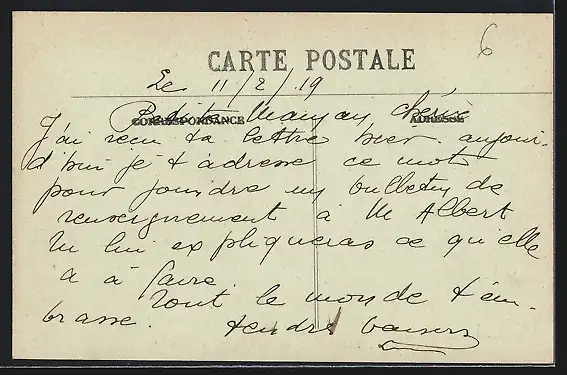 6
CARTE POSTALE
Le 11/2/19
CORRESPONDANCE ADRESSE
Petite Maman chérie
J'ai reçu ta lettre hier. aujour-
d'hui je t'adresse ce mot
pour joindre un bulletin de
renseignement à M Albert
tu lui expliqueras ce qu'elle
a à faire.
Tout le monde t'em-
brasse. tendre baisers